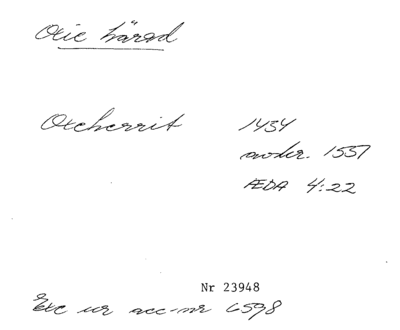 Oxie härad
Oxeherrit 1434
avskr. 1537
ÆDA 4:22
Nr 23948
Exc ur acc-nr 6598